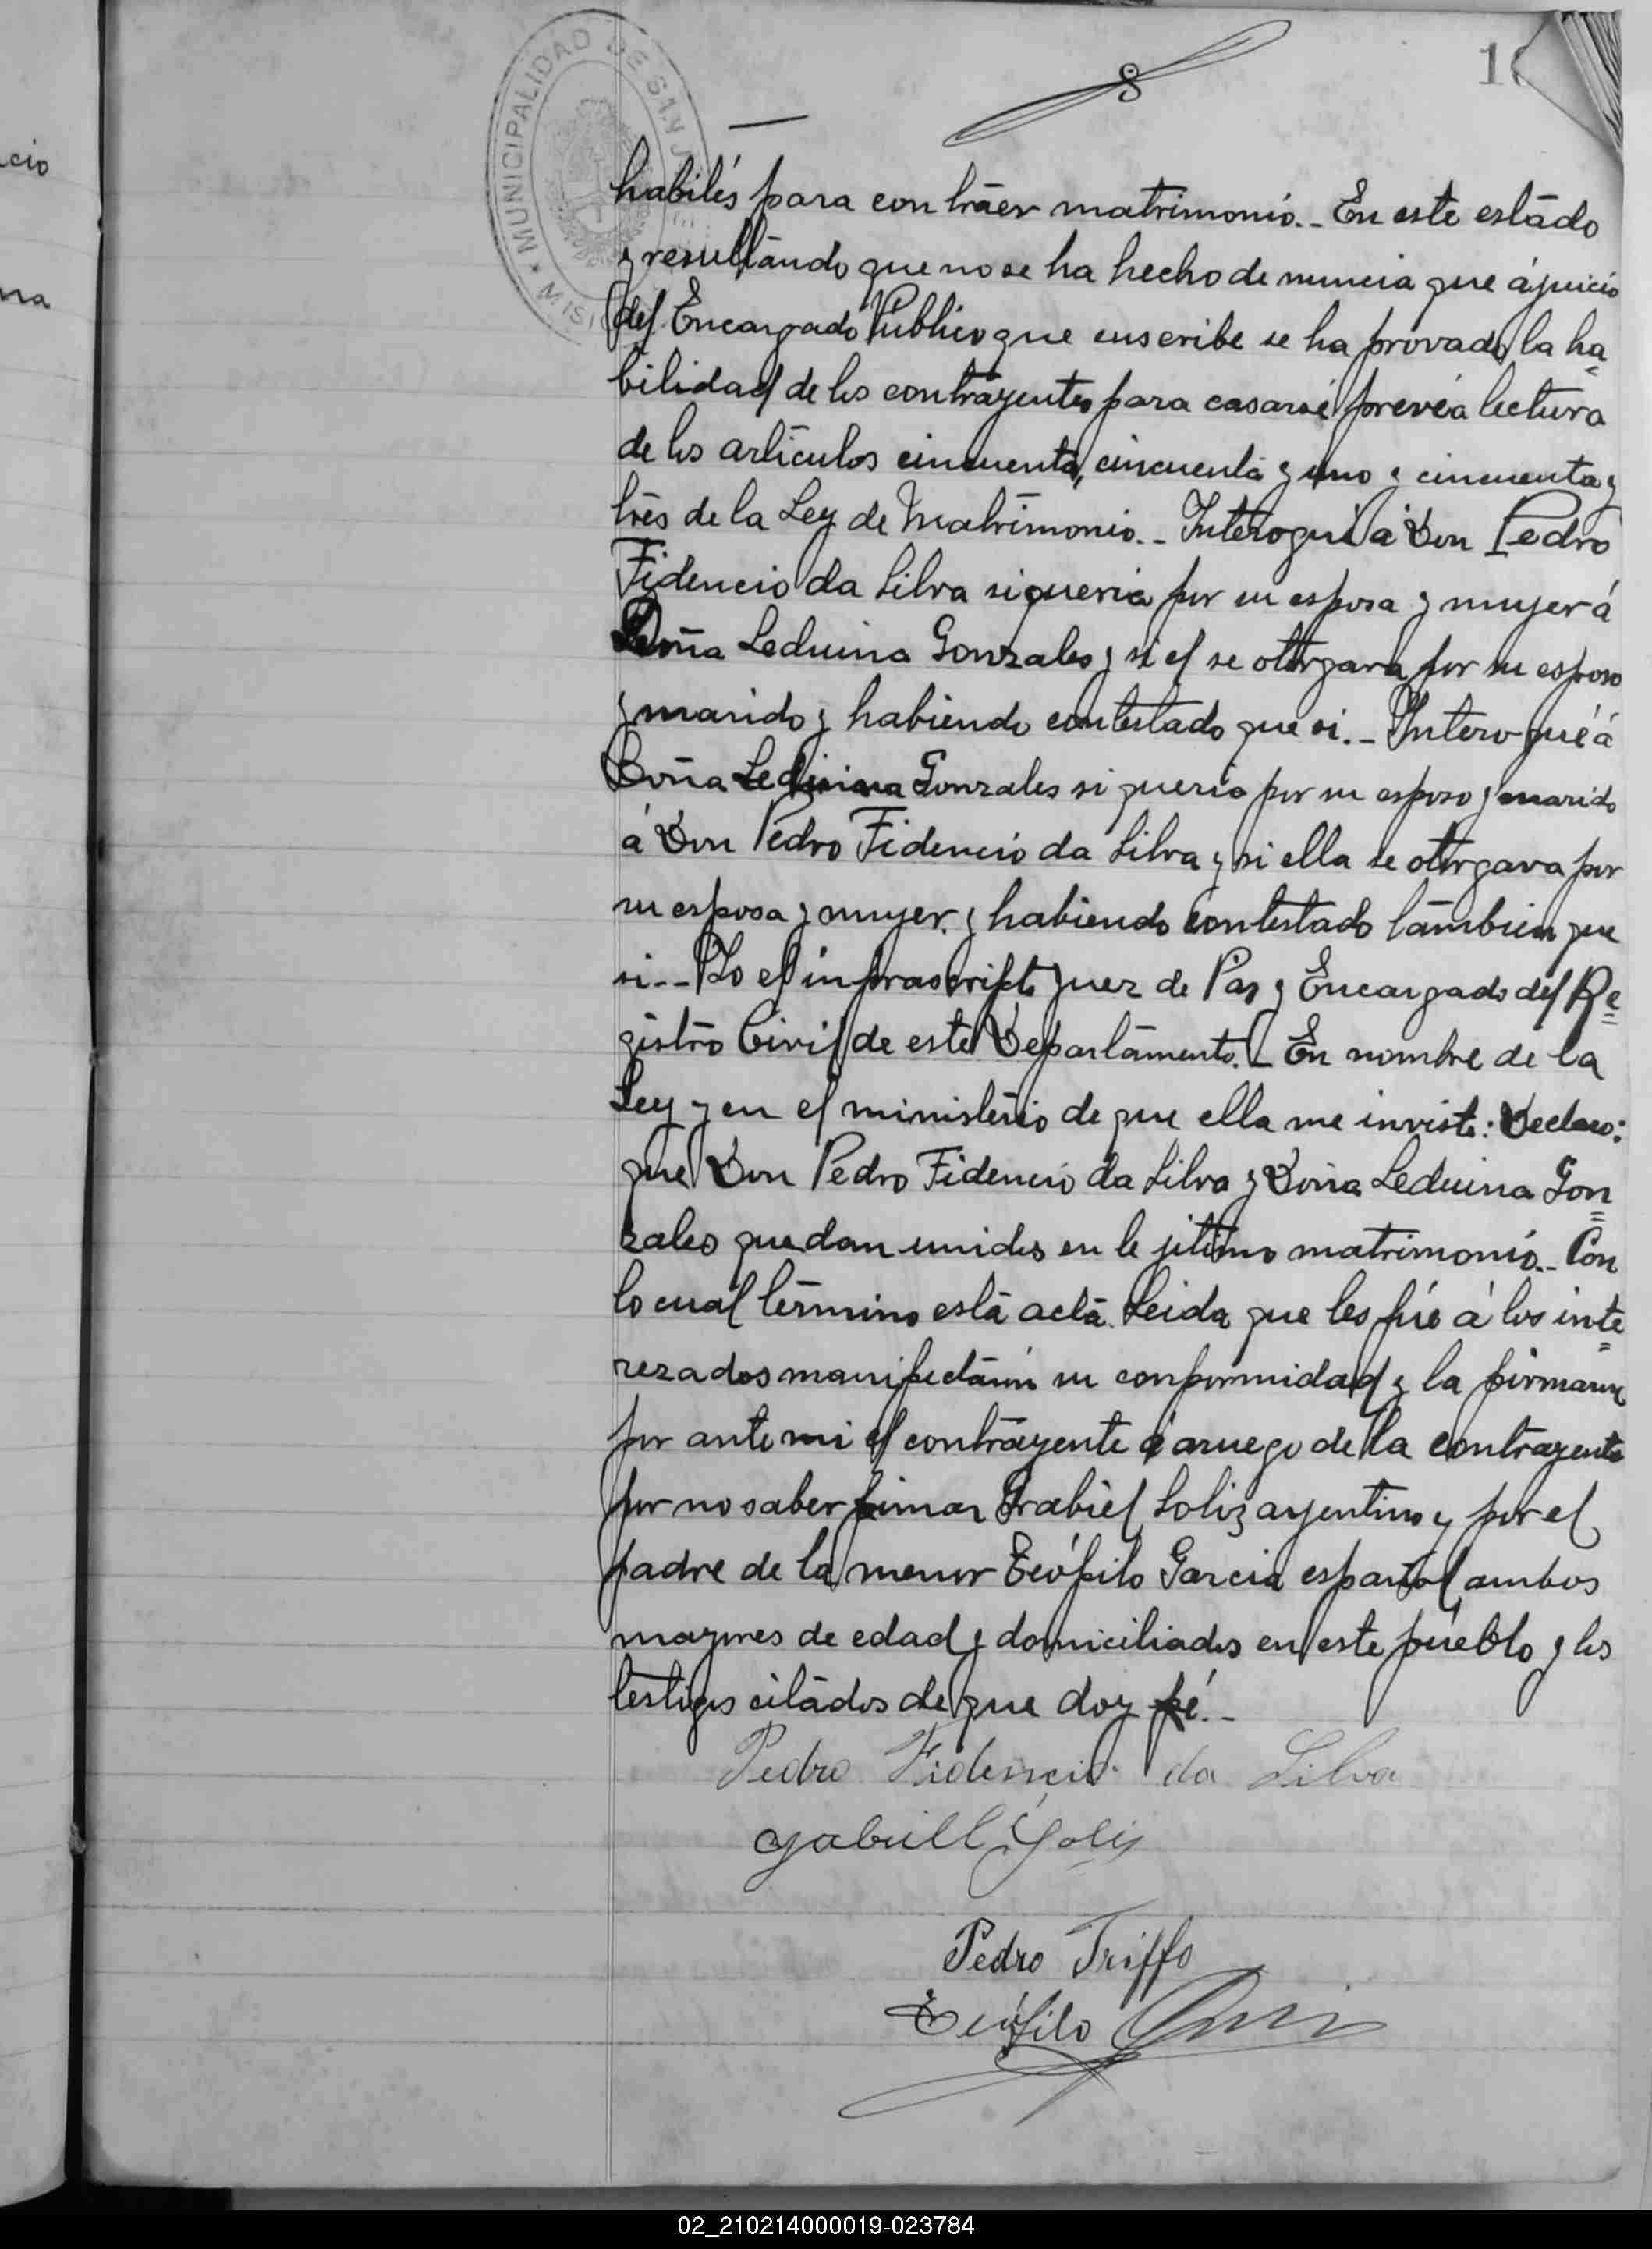 cio
na
MUNICIPALIDAD DE SAN J
MISI
8
1
habilés para contraer matrimonio.- En este estado
y resultando que no se ha hecho denuncia que á juicio
del Encargado Publico que enscribe se ha provado la ha=
bilidad de los contrayentes para casarsé prevéa lectura
de los articulos cincuenta, cincuenta y uno y cincuenta y
trés de la Ley de Matrimonio.- Interogué á Don Pedro
Fidencio da Silva si queria por su esposa y muyer á
Doña Leduina Gonzales y si el se otorgava por su esposo
y marido y habiendo contestado que si.- Interogué á
Doña Leduina Gonzales si queria por su esposo y marido
á Don Pedro Fidencio da Silva y si ella se otorgava por
su esposa y muyer. y habiendo contestado tambien que
si.- Yo el infrascripto Juez de Paz y Encargado del Re=
gistro Civil de este Departamento.- En nombre de la
Ley y en el ministerio de que ella me inviste: Declaro:
que Don Pedro Fidencio da Silva y Doña Leduina Gon=
zales quedan unidos en lejitimo matrimonio.- Con
lo cual término esta acta. Leida que les fué á los inte=
rezados manifestáron su conformidad y la firmaron
por ante mi el contrayente á aruego de la contrayente
por no saber firmar Grabiel Soliz argentino y por el
padre de la menor Teófilo Garcia español ambos
mayores de edad y domiciliados en este pueblo y los
testigos citados de que doy fé.-
Pedro Fidencio da Silva
Gabriell Solis
Pedro Triffo
Teófilo
02_210214000019-023784